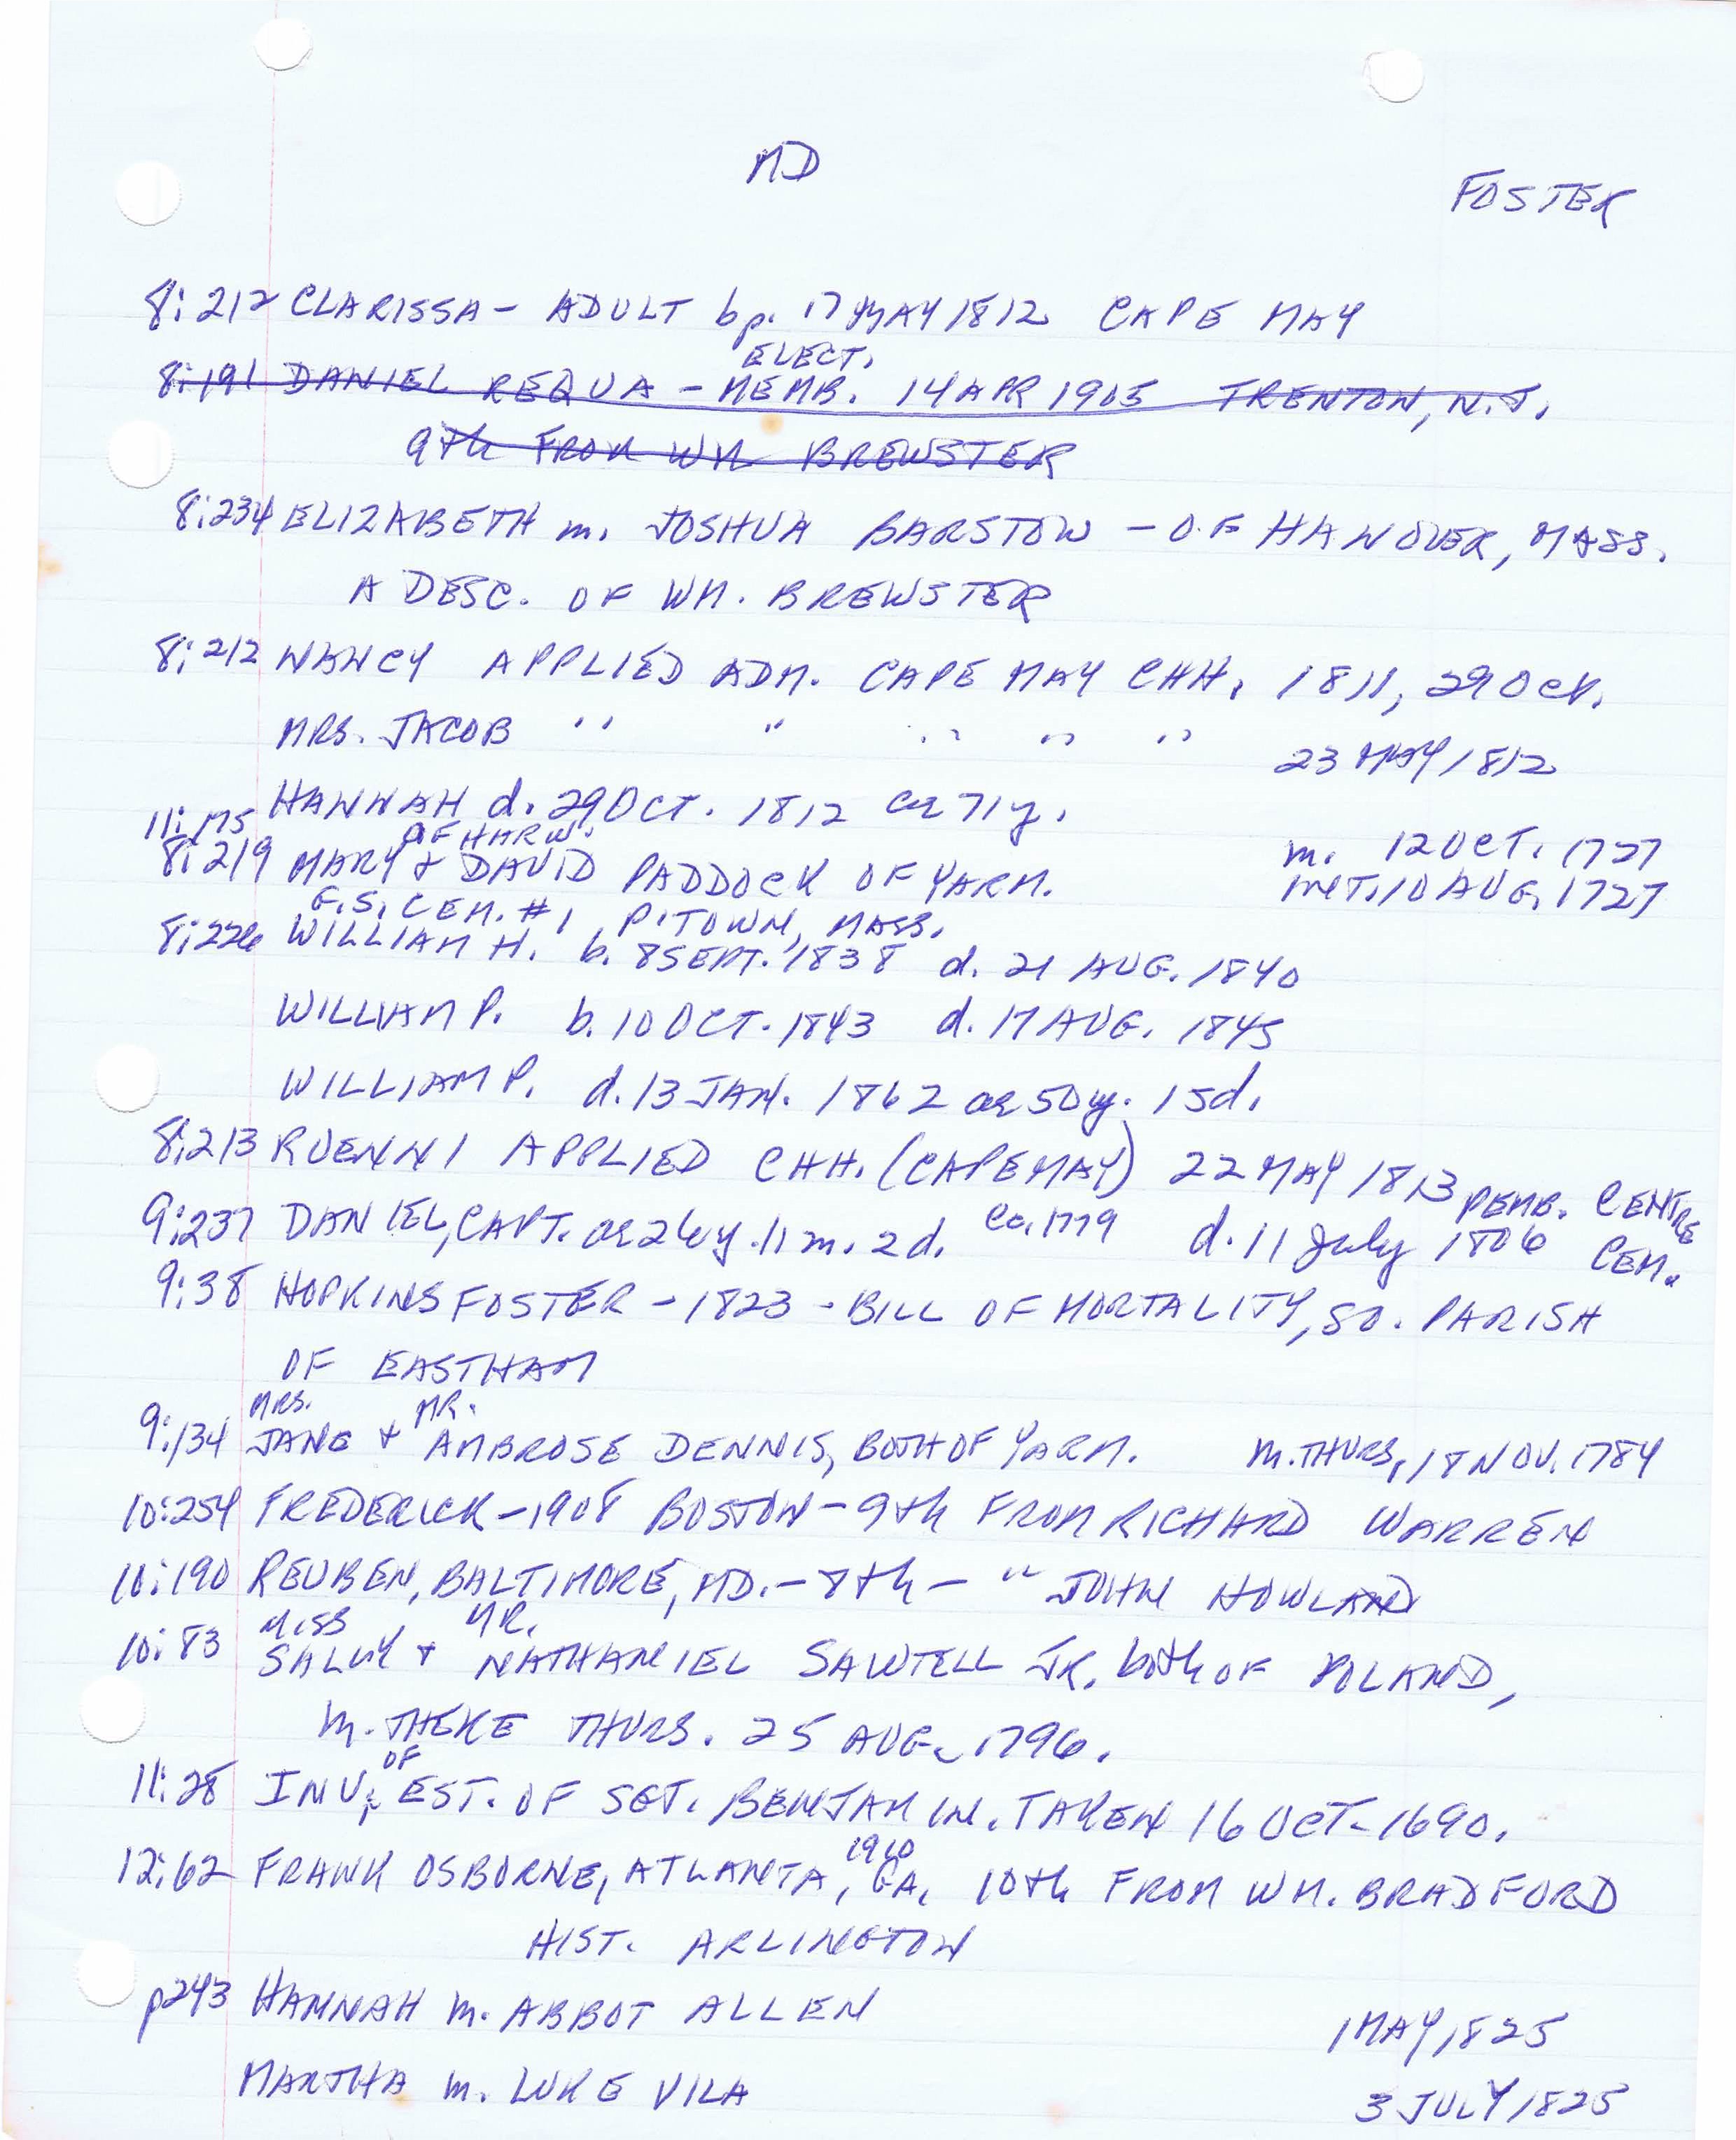 MD
FOSTER
8:212 CLARISSA - ADULT bp. 17 MAY 1812 CAPE MAY
ELECT.
8:191 DANIEL REQUA - MEMB. 14 APR 1905 TRENTON, N.J.
9th FROM WM BREWSTER
8:234 ELIZABETH m. JOSHUA BARSTOW - OF HANOVER, MASS.
A DESC. OF WM. BREWSTER
8:212 NANCY APPLIED ADM. CAPE MAY CHH. 1811, 29 Oct.
MRS. JACOB " " " " " 23 MAY 1812
11:175 HANNAH d. 29 OCT. 1812 ae 71y.
OF HARW. m. 12 OCT. 1727
8:219 MARY & DAVID PADDOCK OF YARM. INT. 10 AUG. 1727
G.S. CEM. #1, P'TOWN, MASS.
8:226 WILLIAM H. b. 8 SEPT. 1838 d. 21 AUG. 1840
WILLIAM P. b. 10 OCT. 1843 d. 17 AUG. 1845
WILLIAM P. d. 13 JAN. 1862 ae 50y. 15d.
8:213 RUENNI APPLIED CHH. (CAPE MAY) 22 MAY 1813
9:237 DANIEL, CAPT. ae 26y. 11m. 2d. ca. 1779 d. 11 July 1806 PEMB. CENTRE CEM.
9:38 HOPKINS FOSTER - 1823 - BILL OF MORTALITY, SO. PARISH
OF EASTHAM
MRS. MR.
9:134 JANE & AMBROSE DENNIS, BOTH OF YARM. m. THURS, 18 NOV. 1784
10:254 FREDERICK - 1908 BOSTON - 9th FROM RICHARD WARREN
10:190 REUBEN, BALTIMORE, MD. - 8th - " JOHN HOWLAND
MISS MR.
10:83 SALLY & NATHANIEL SAWTELL JR. both OF POLAND,
m. THERE THURS. 25 AUG. 1796.
OF
11:28 INV. EST. OF SGT. BENJAMIN. TAKEN 16 OCT. 1690.
1910
12:62 FRANK OSBORNE, ATLANTA, GA. 10th FROM WM. BRADFORD
HIST. ARLINGTON
p243 HANNAH m. ABBOT ALLEN 1 MAY 1825
MARTHA m. LUKE VILA 3 JULY 1825